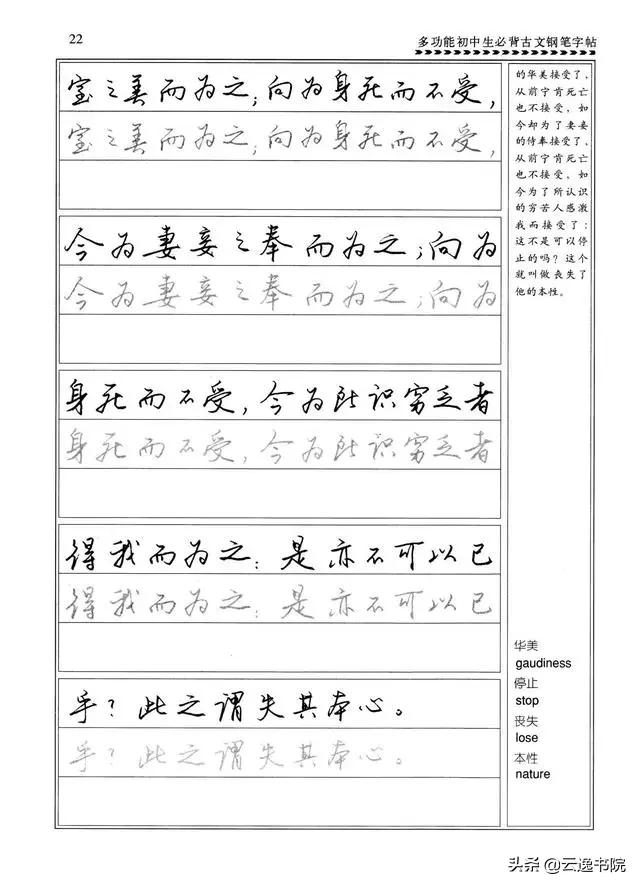 22
多功能初中生必背古文钢笔字帖
室之美而为之；向为身死而不受，
室之美而为之；向为身死而不受，
今为妻妾之奉而为之；向为
今为妻妾之奉而为之；向为
身死而不受，今为所识穷乏者
身死而不受，今为所识穷乏者
得我而为之：是亦不可以已
得我而为之：是亦不可以已
乎？此之谓失其本心。
乎？此之谓失其本心。
的华美接受了，
从前宁肯死亡
也不接受，如
今却为了妻妾
的侍奉接受了，
从前宁肯死亡
也不接受，如
今为了所认识
的穷苦人感激
我而接受了：
这不是可以停
止的吗？这个
就叫做丧失了
他的本性。
华美
gaudiness
停止
stop
丧失
lose
本性
nature
头条 @云逸书院